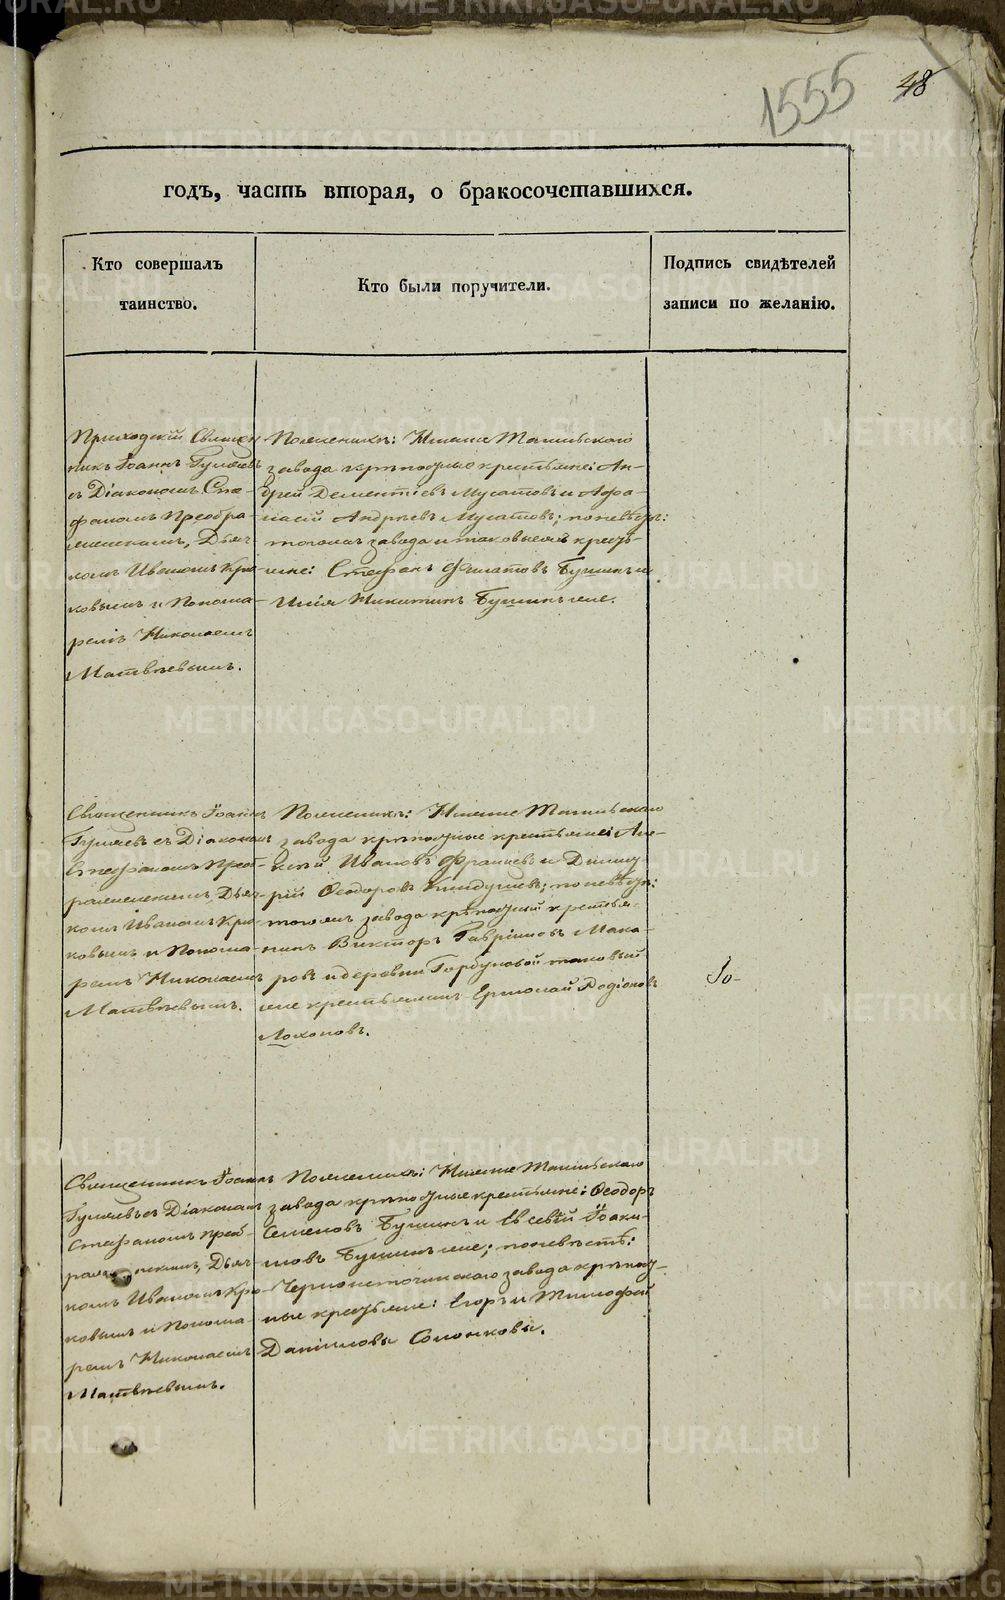 1555
48
годъ, часть вторая, о бракосочетавшихся.
Кто совершалъ
таинство.
Кто были поручители.
Подпись свидѣтелей
записи по желанію.
Приходскій Священ
никъ Іоаннъ Гуляевъ
съ Діакономъ Сте-
фаномъ Преобра
женскимъ, Дьяч
комъ Иваномъ Крю
ковымъ и Понома-
ремъ Николаемъ
Матвѣевымъ.
По женихѣ: Нижне Тагильскаго
завода крѣпостные крестьяне: Ан-
дрей Дементіевъ Мусатовъ и Афа-
насій Андреевъ Мусатовъ; по невѣстѣ:
тогожъ завода и таковыежъ кресть-
яне: Стефанъ Филатовъ Бушинъ и
Илія Никитинъ Бушинъ же.
Священникъ Іоаннъ
Гуляевъ съ Діакономъ
Стефаномъ Преоб-
раженскимъ, Дьяч-
комъ Иваномъ Крю
ковымъ и Понома-
ремъ Николаемъ
Матвѣевымъ.
По женихѣ: Нижне Тагильскаго
завода крѣпостные крестьяне: Але-
ксѣй Ивановъ и Димит-
рій Ѳеодоровъ по невѣстѣ:
тогожъ завода крѣпостный крестья-
нинъ Викторъ Гавриловъ Мака-
ровъ и деревни Горбуновой таковый
же крестьянинъ Ермолай Родіоновъ
Лохоновъ.
Священникъ Іоаннъ
Гуляевъ съ Діакономъ
Стефаномъ Преоб-
раженскимъ, Дьяч
комъ Иваномъ Крю-
ковымъ и Понома-
ремъ Николаемъ
Матвѣевымъ.
По женихѣ: Нижне Тагильскаго
завода крѣпостные крестьяне: Ѳеодоръ
Семеновъ Бушинъ и Евсевій Іоаки-
мовъ Бушинъ же; по невѣстѣ:
Черноисточинскаго завода крѣпост-
ные крестьяне: Егоръ и Тимофей
Даниловы Солонковы.
METRIKI.GASO-URAL.RU